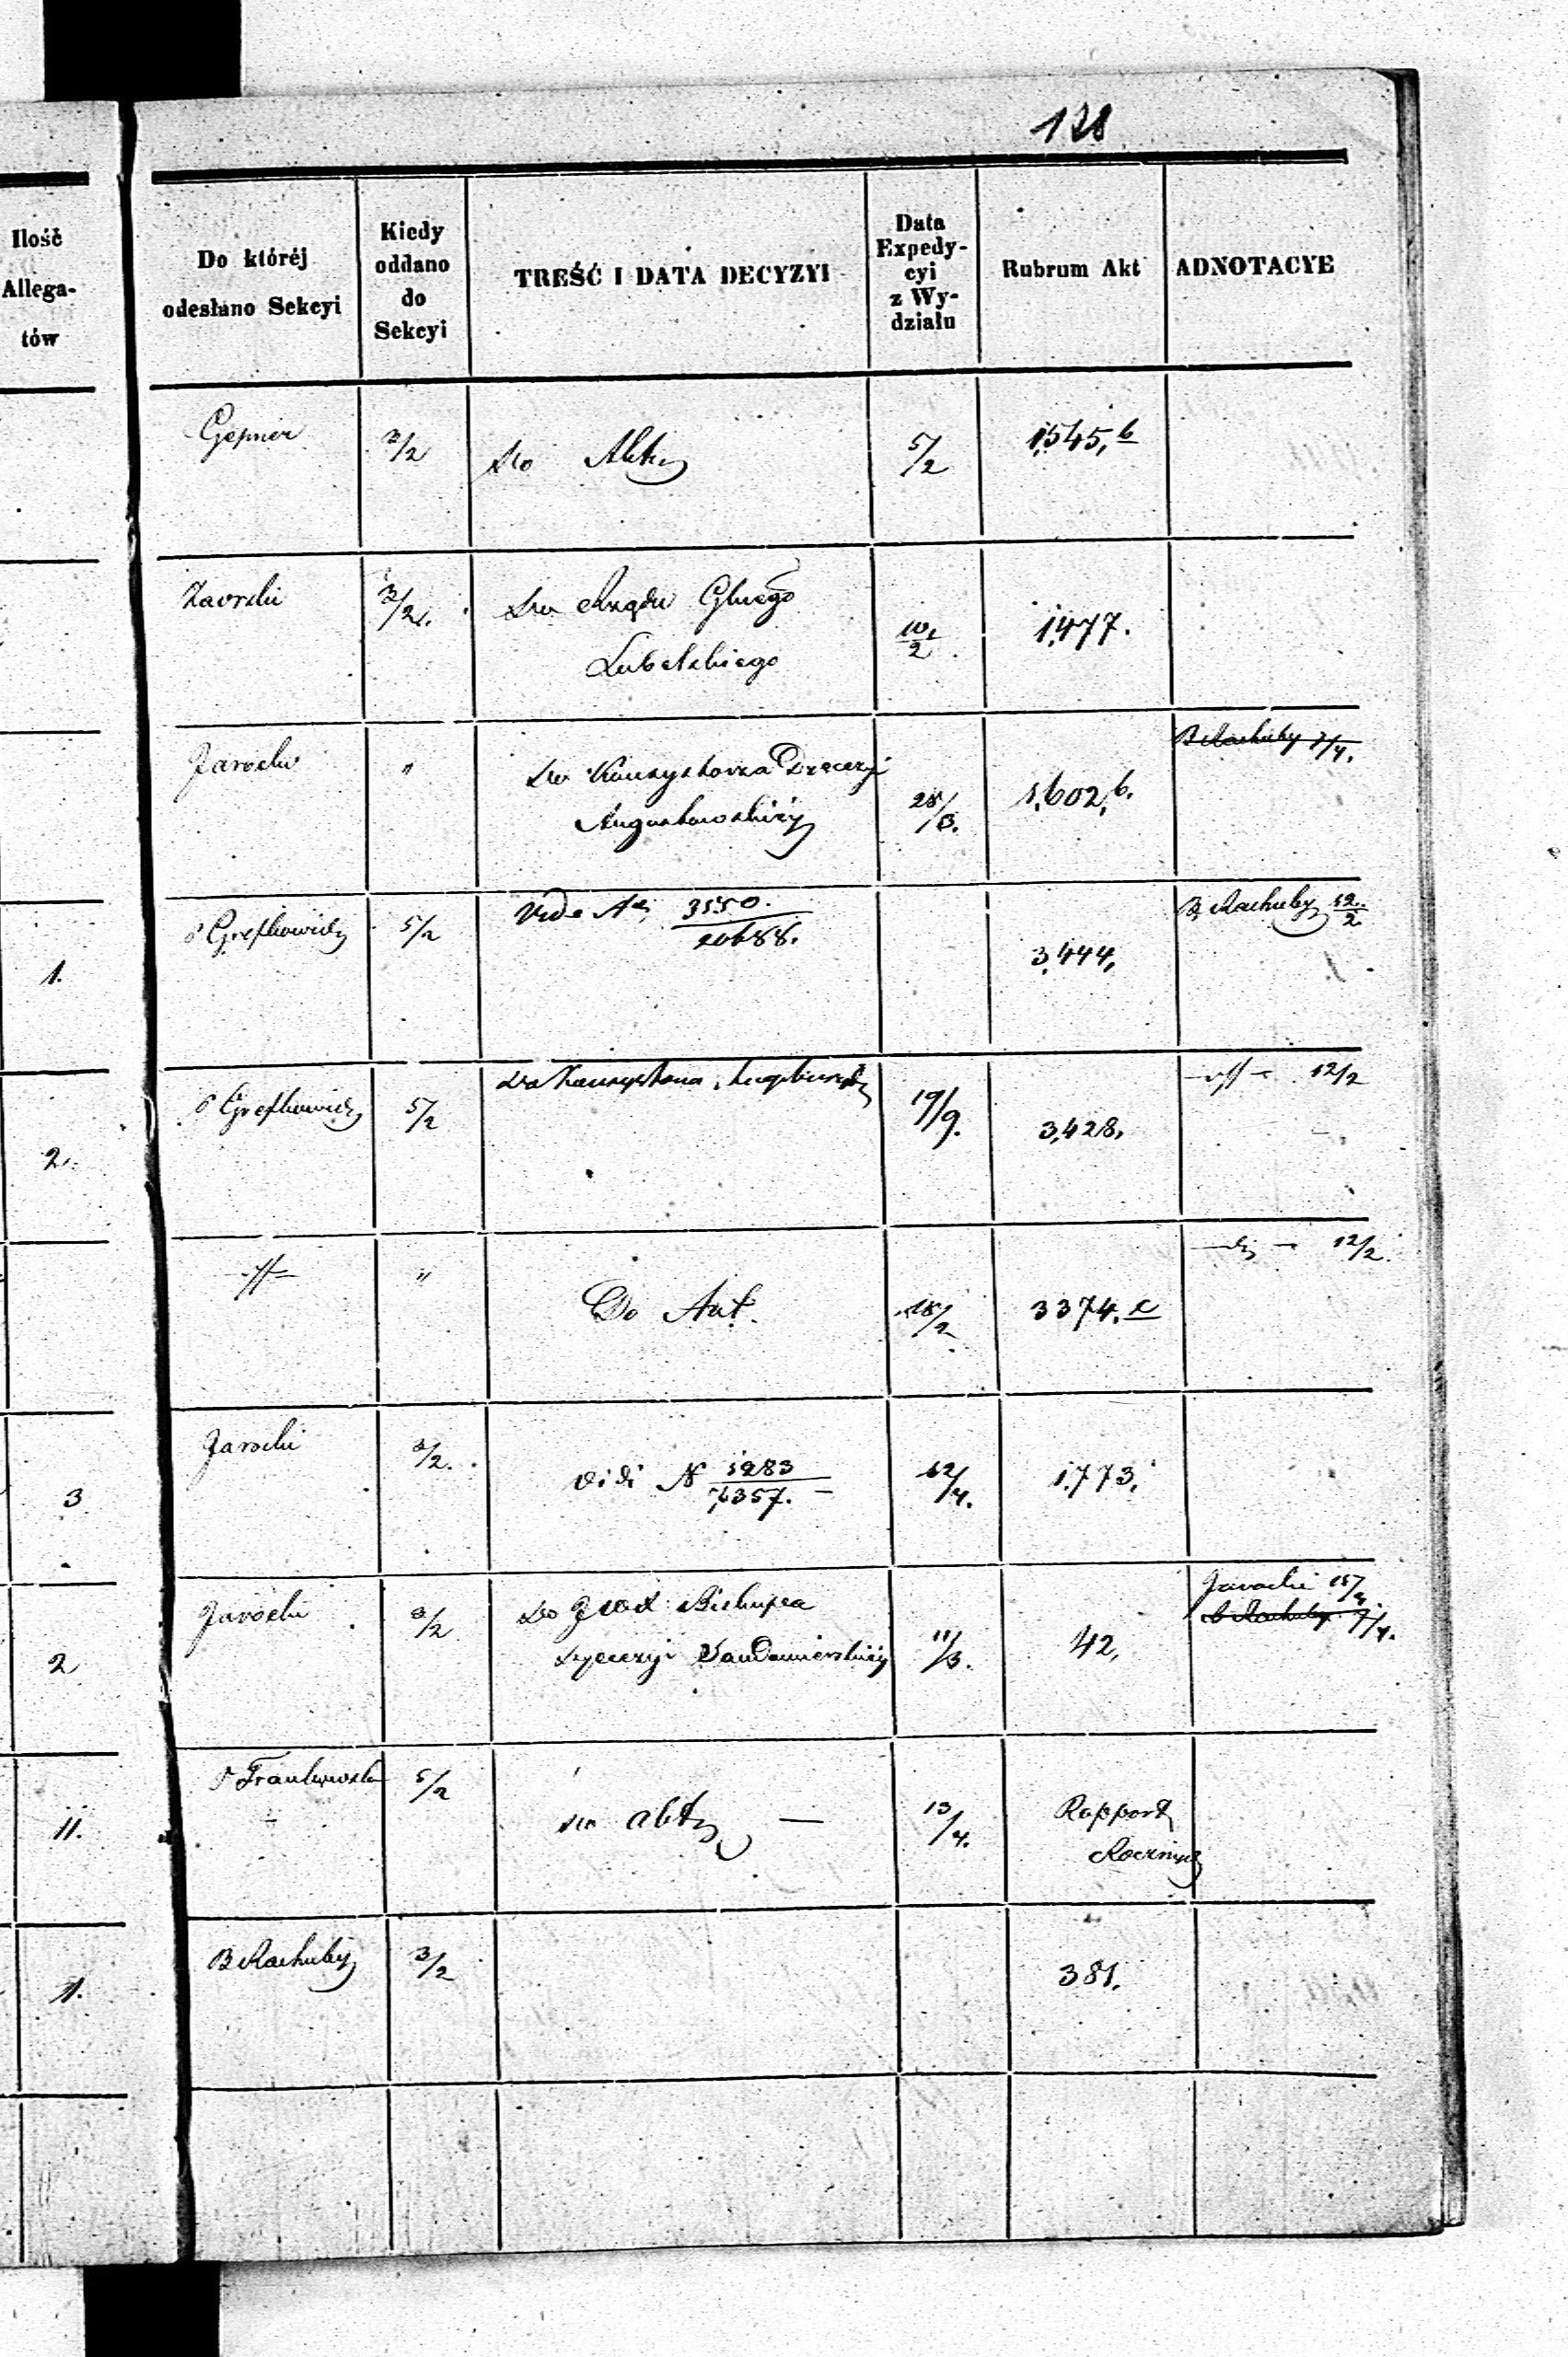 128
Ilość
Allega-
tów
Do któréj
odesłano Sekcyi
Kiedy
oddano
do
Sekcyi
TREŚĆ I DATA DECYZYI
Data
Expedy-
cyi
z Wy-
działu
Rubrum Akt
ADNOTACYE
Gepner 3/2 do Akt 5/2 1,545, b
3/2. do Rządu Glnego
Lubelskiego 10/2 1,477.
Jarocki " do Konsystorza Dyecezyi
Augustowskiéj 28/3. 1,602, b. B Rachuby 7/4.
1. P Grefkowicz 5/2 Vide Nr 3550./20688. 3,444, B. Rachuby 12/2
2. P Grefkowicz 5/2 do Konsystorza 19/9. 3,428, 12/2
" Do Akt. 18/2 3374. c 12/2
3 Jarocki 3/2. vidi N 1283/7357. — 12/4. 1,773.
2 Jarocki 3/2 do Biskupa
Dyecezyi Sandomierskiéj 11/3. 42, Jarocki 15/4
B Rachuby 7/4.
11. 5/2 do akt — 13/4. Rapport
Roczny
1. B Rachuby 3/2 381.